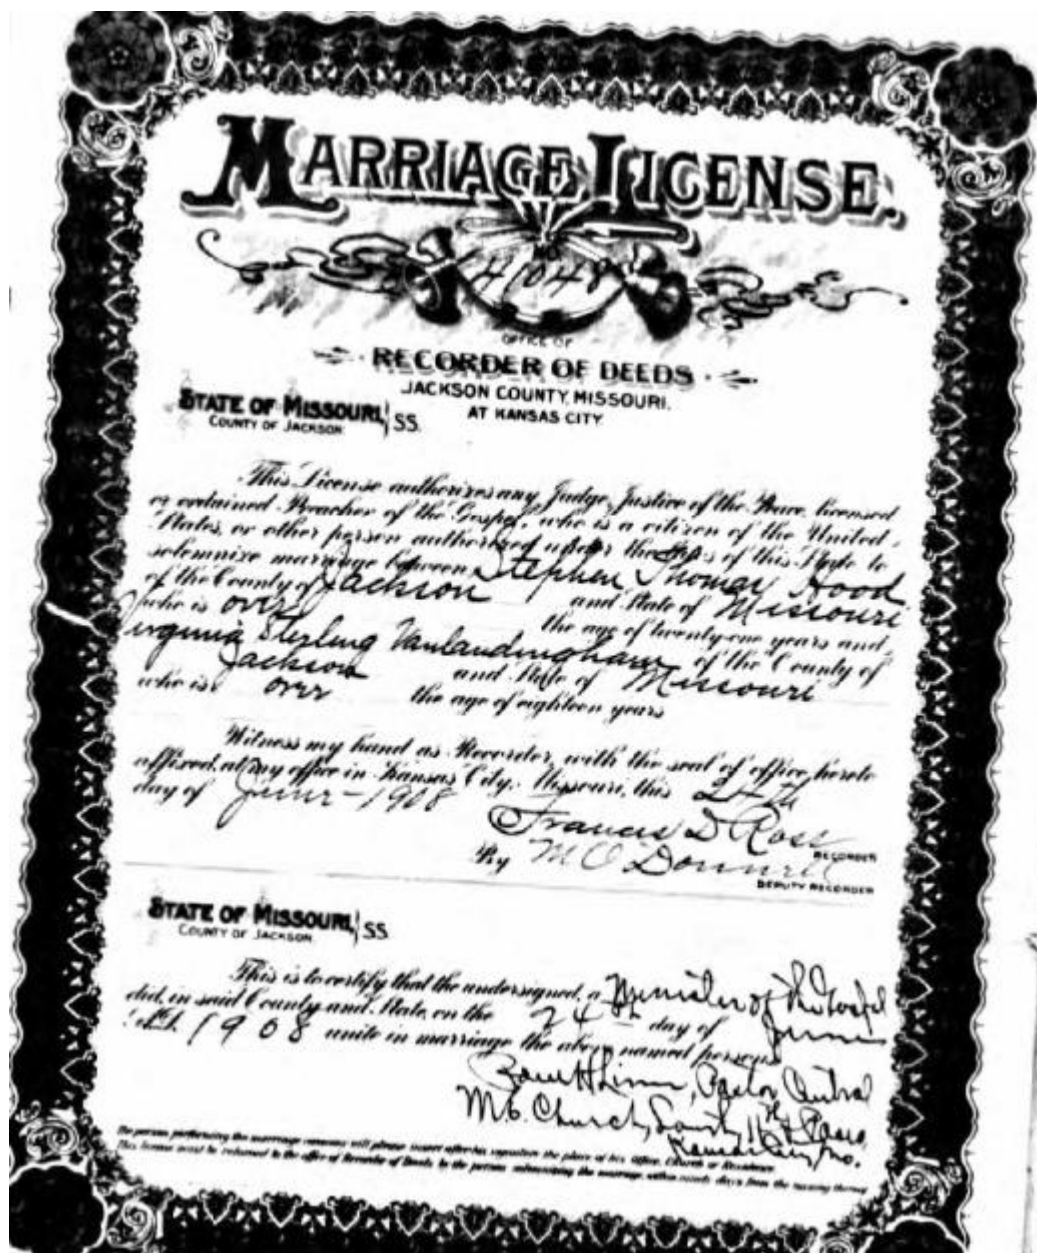 MARRIAGE LICENSE.
41048
OFFICE OF
RECORDER OF DEEDS
JACKSON COUNTY, MISSOURI.
AT KANSAS CITY.
STATE OF MISSOURI, } SS.
COUNTY OF JACKSON
This License authorizes any Judge, Justice of the Peace, licensed
or ordained Preacher of the Gospel, who is a citizen of the United
States, or other person authorized under the laws of this State to
solemnize marriage between Stephen Thomas Hood
of the County of Jackson and State of Missouri
who is over the age of twenty-one years and
Virginia Sterling Vanlandingham of the County of
Jackson and State of Missouri
who is over the age of eighteen years
Witness my hand as Recorder, with the seal of office hereto
affixed, at my office in Kansas City, Missouri, this 24th
day of June - 1908
Francis D Ross
RECORDER
By M O'Donnell
DEPUTY RECORDER
STATE OF MISSOURI, } SS.
COUNTY OF JACKSON
This is to certify that the undersigned, a Minister of the Gospel
did, in said County and State, on the 24th day of June
A.D. 1908 unite in marriage the above named persons
Linn, Pastor Central
M.E. Church, South, 11th &
Kansas City, Mo.
The person performing the marriage ceremony will please insert after his signature the place of his Office, Church or Residence.
This license must be returned to the office of Recorder of Deeds by the person solemnizing the marriage, within ninety days from the issuing thereof